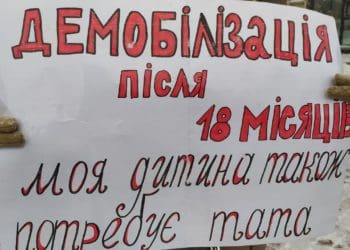 ДЕМОБІЛІЗАЦІЯ
ПІСЛЯ
18 МІСЯЦІВ
моя дитина також
потребує тата